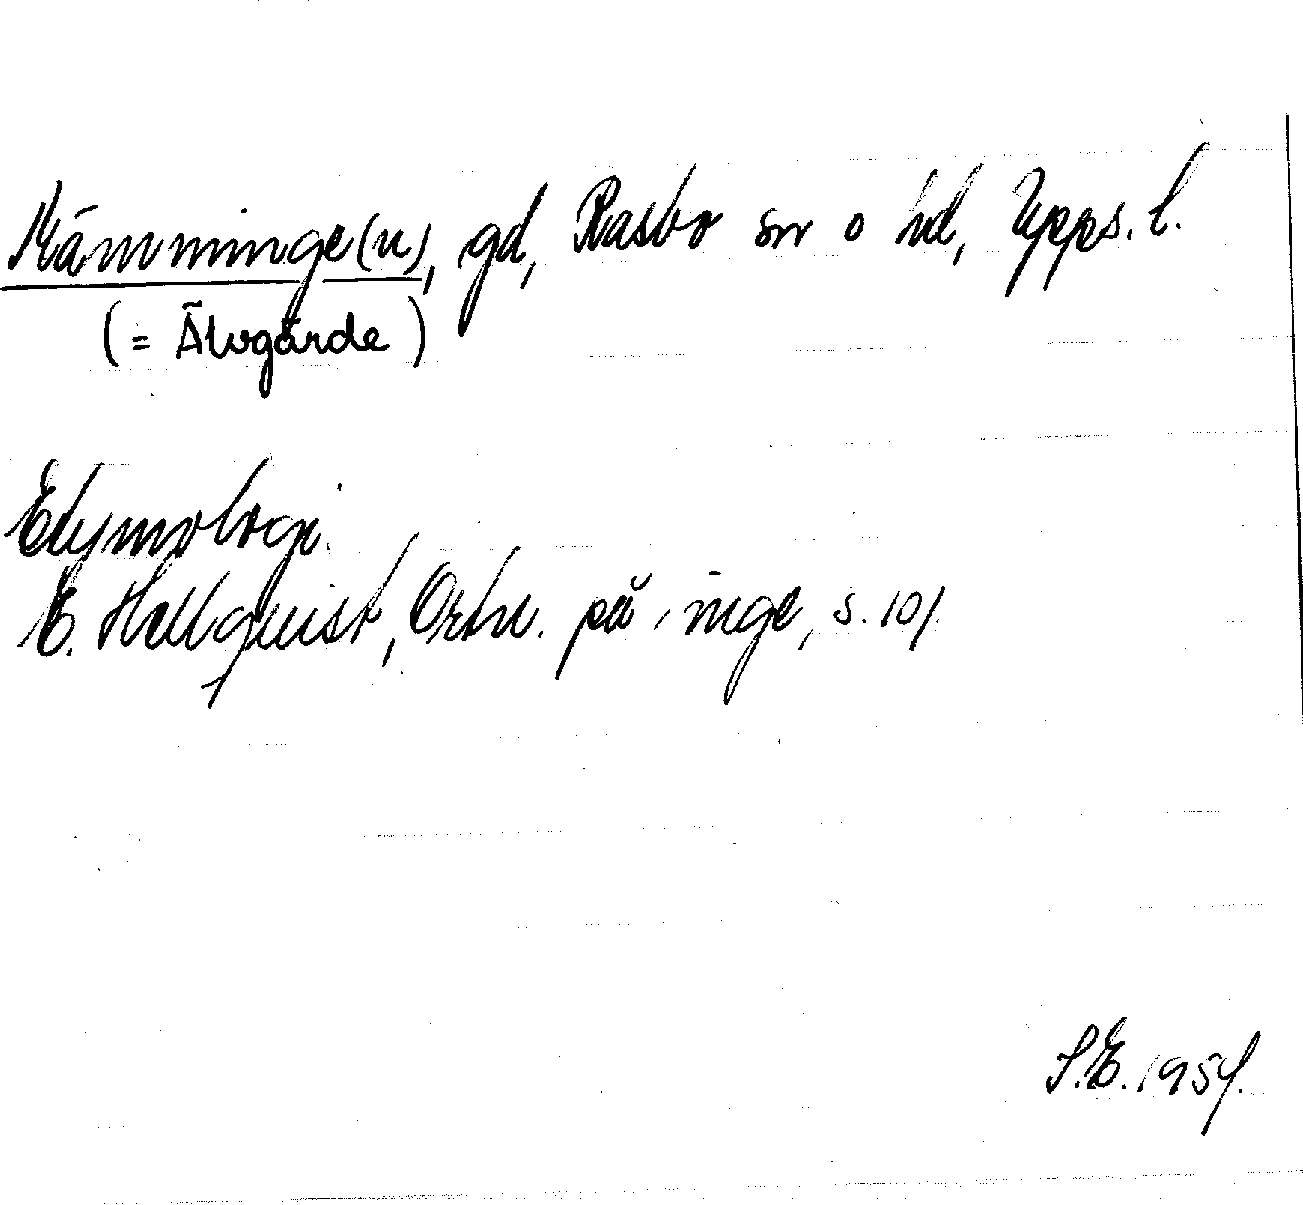 Kämminge(n), gd, Rasbo sn o hd, Upps. l.
(= Älvgärde)
Etymologi.
E. Hellquist, Ortn. på -inge, s. 101.
S.E. 1954.